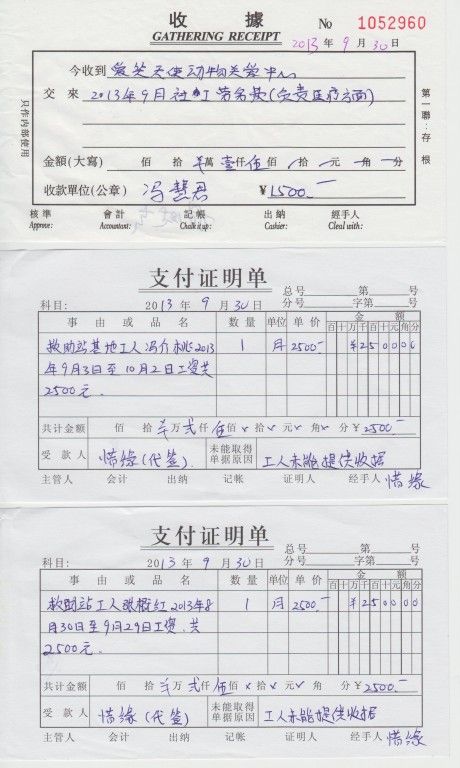 收據
GATHERING RECEIPT
No 1052960
2013年9月30日
今收到 爱芸天使动物关爱中心
交來 2013年9月社工劳务款(负责医疗方面)
金額(大寫) 佰 拾 萬壹仟伍佰 拾 元 角 分
收款單位(公章) 冯慧君 ¥1500.-
只作内部使用
第一聯:存根
核準 會計 記帳 出納 經手人
Approve: Accountant: Chalk it up: Cashier: Cleal with:
支付证明单
总号 第 号
科目: 2013年9月30日 分号 字第 号
事由或品名 数量 单位 单价 金额
百十万千百十元角分
救助站基地工人冯介桃2013 1 月 2500.- ¥250000
年9月3日至10月2日工资共
2500元.
共计金额 佰 拾 万贰仟伍佰×拾×元×角×分 ¥2500.-
受款人 惜缘(代签) 未能取得单据原因 工人未能提供收据
主管人 会计 出纳 记帐 证明人 经手人 惜缘
支付证明单
总号 第 号
科目: 2013年9月30日 分号 字第 号
事由或品名 数量 单位 单价 金额
百十万千百十元角分
救助站工人 红2013年8 1 月 2500.- ¥250000
月30日至9月29日工资.共
2500元.
共计金额 佰 拾 万贰仟伍佰 拾 元 角 分 ¥2500.-
受款人 惜缘(代签) 未能取得单据原因 工人未能提供收据
主管人 会计 出纳 记帐 证明人 经手人 惜缘